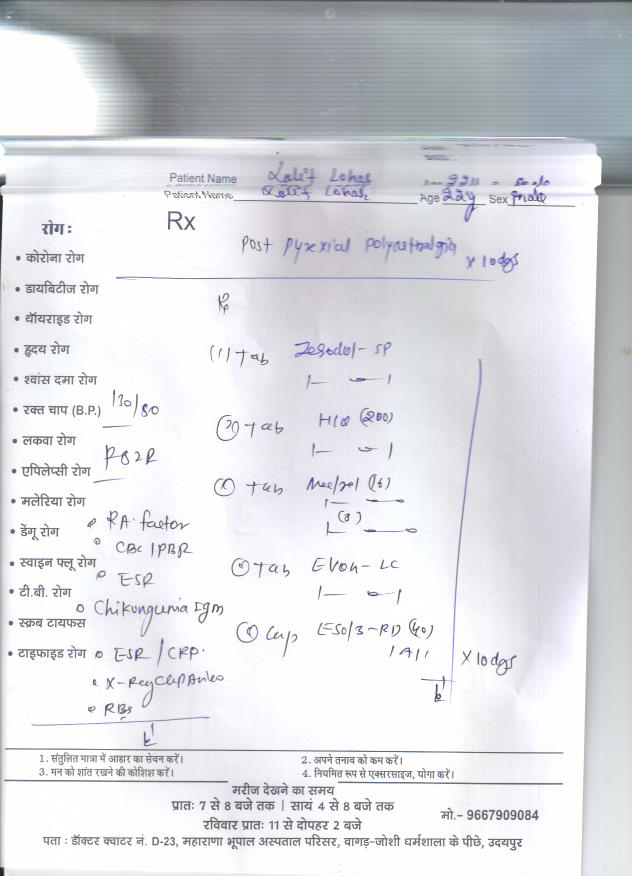 Patient Name Lalit Lohar
Patient Name Lalit Lohar Age 22y Sex Male
रोग: Rx
Post Pyrexial Polyarthralgia x 10 dys
• कोरोना रोग
• डायबिटीज रोग
• थॉयराइड रोग
• हृदय रोग (1) Tab Zerodol-SP
1— — 1
• श्वांस दमा रोग
• रक्त चाप (B.P.) 130/80
(2) Tab HCQ (200)
1— — 1
• लकवा रोग
• एपिलेप्सी रोग
Tab (16)
• मलेरिया रोग
(8)
• डेंगू रोग RA. factor
CBC/PBR
• स्वाइन फ्लू रोग Tab Evon-LC
1— — 1
ESR
• टी.बी. रोग
Chikungunia Igm
• स्क्रब टायफस
Cap ESOZ-RD (40)
• टाइफाइड रोग ESR/CRP. x 10 dys
X-Ray
RBS
1. संतुलित मात्रा में आहार का सेवन करें। 2. अपने तनाव को कम करें।
3. मन को शांत रखने की कोशिश करें। 4. नियमित रूप से एक्सरसाइज, योगा करें।
मरीज देखने का समय
प्रातः 7 से 8 बजे तक | सायं 4 से 8 बजे तक
मो.- 9667909084
रविवार प्रातः 11 से दोपहर 2 बजे
पता : डॉक्टर क्वाटर नं. D-23, महाराणा भूपाल अस्पताल परिसर, वागड़-जोशी धर्मशाला के पीछे, उदयपुर